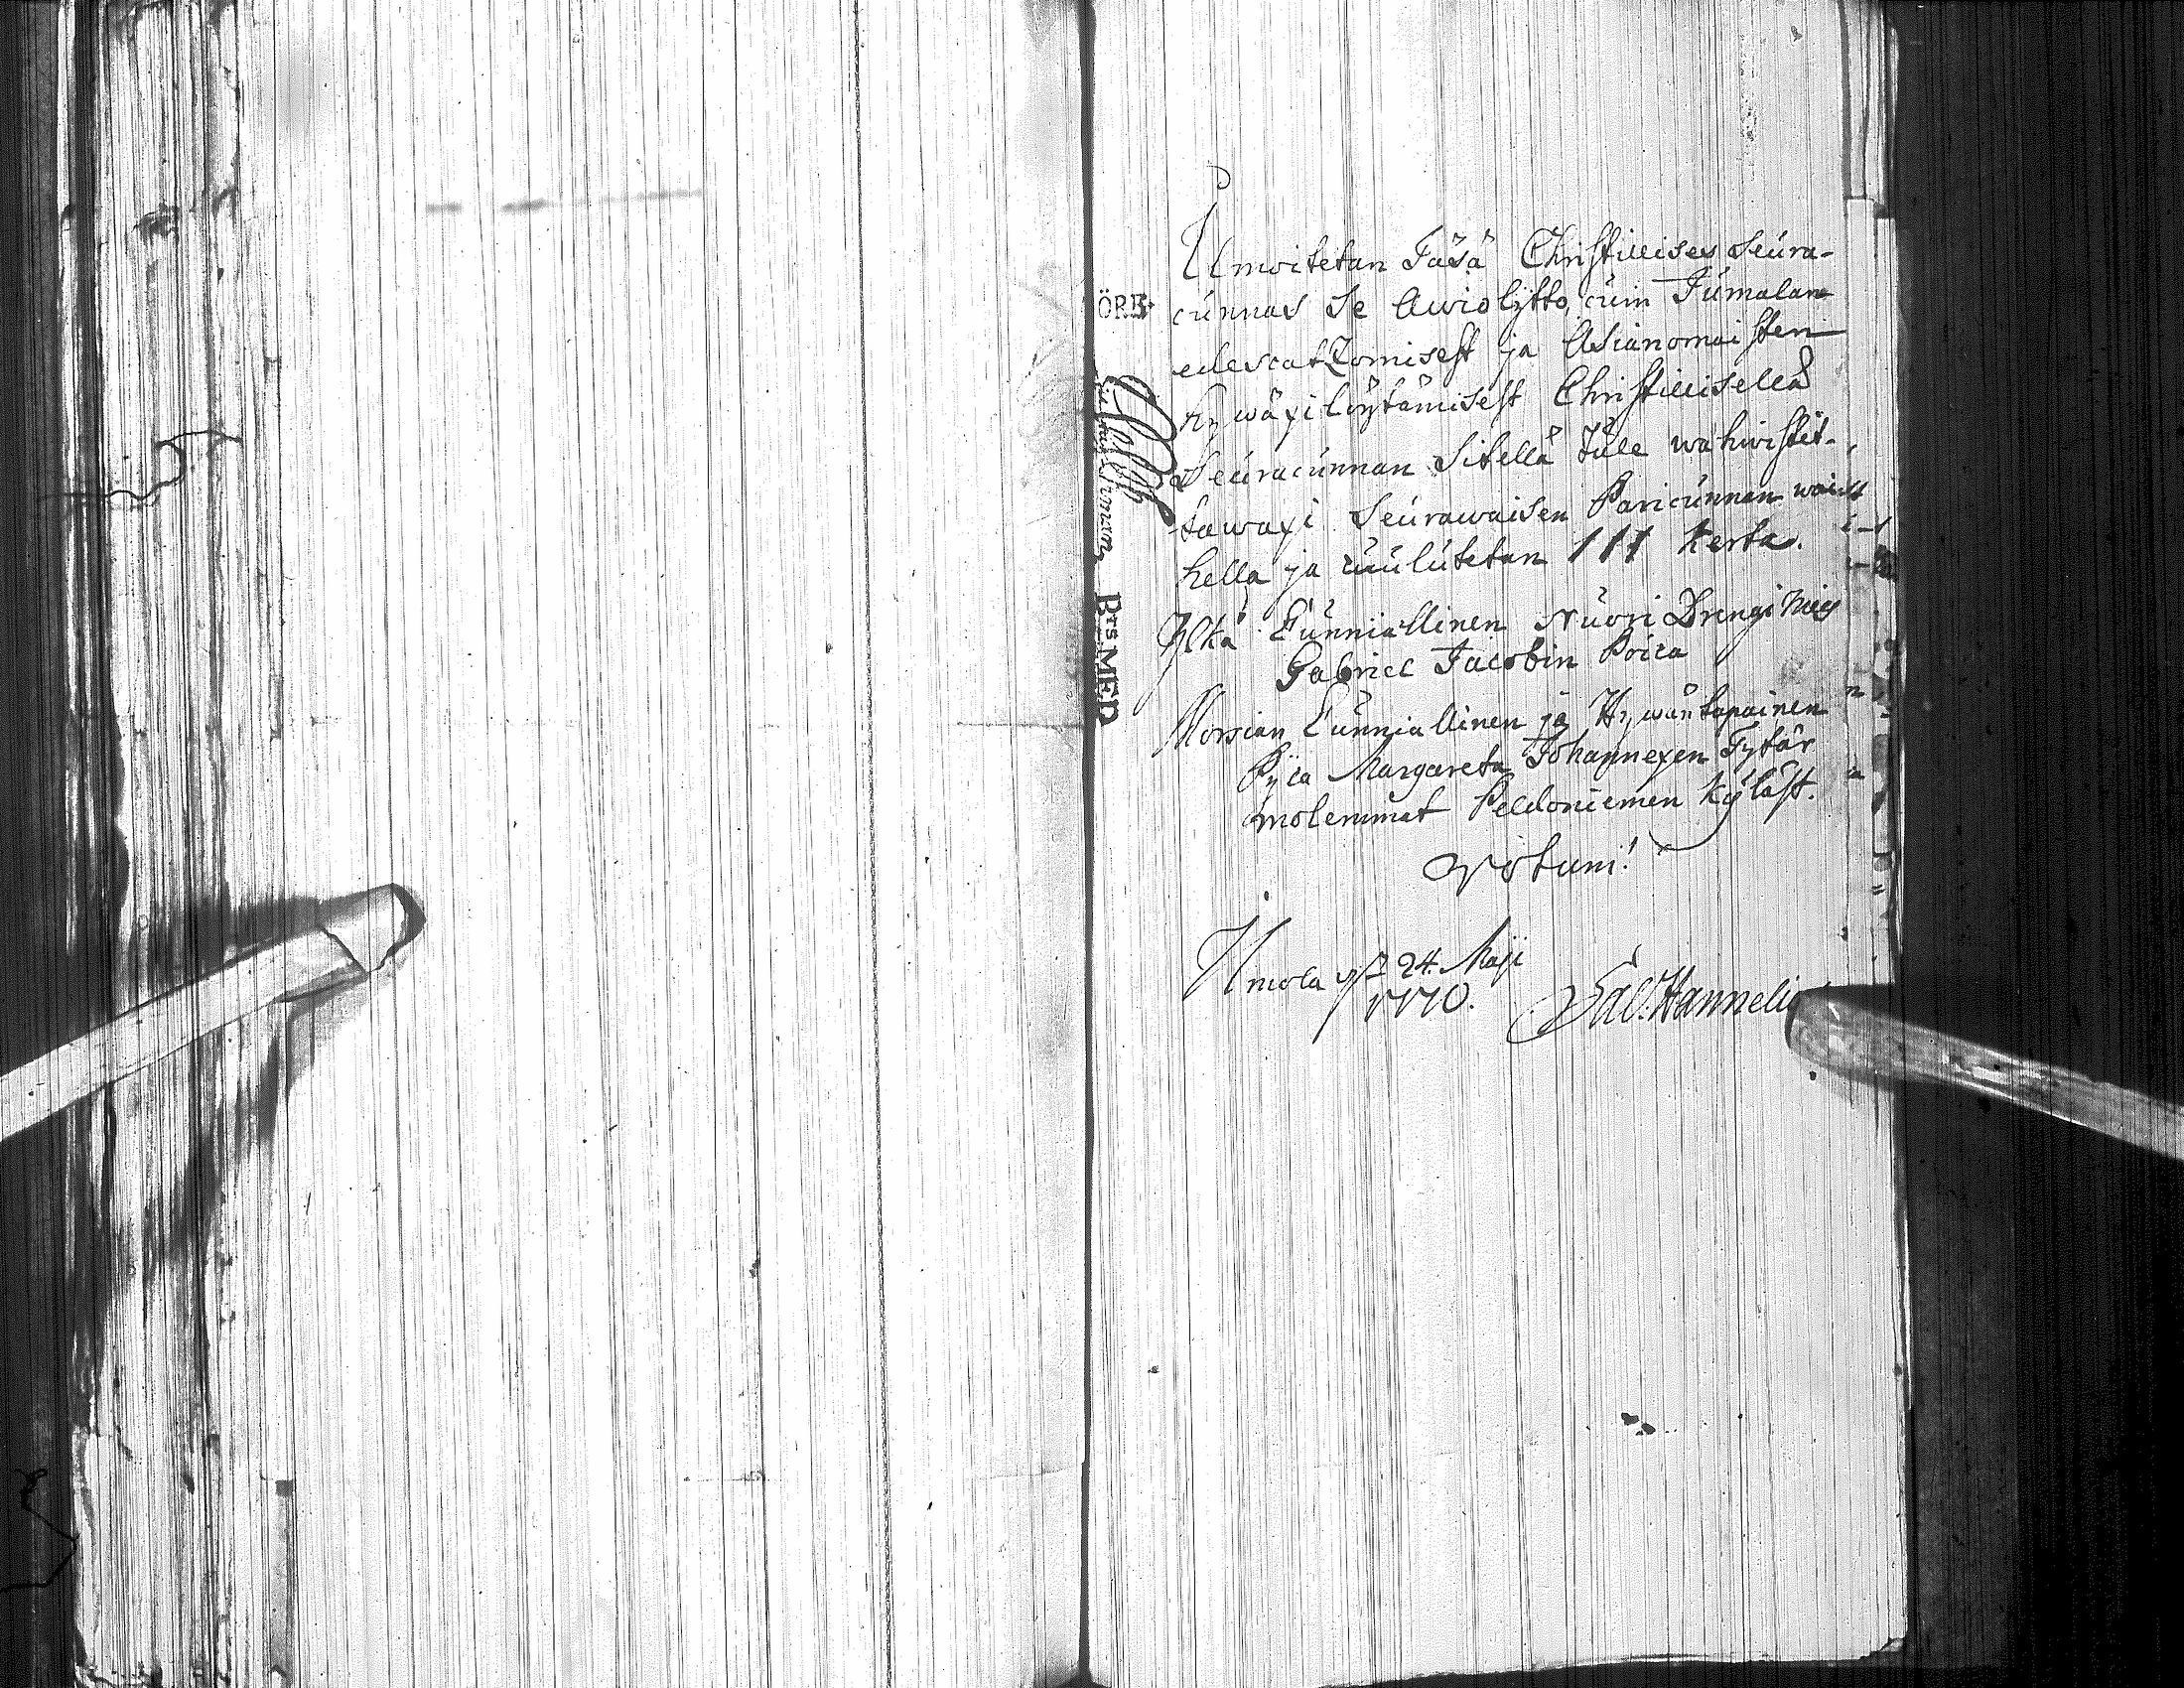 Ilmoitetan Täsä Christillises Seura-
cunnas Se Awiolijtto, cuin Jumalan
edescatzomisest ja Asianomaisten
hywäxilöytämisest Christillisellä
Seuracunnan Sitellä tule wahwistet-
tawaxi Seurawaisen Paricunnan waih
hella ja cuulutetan 1 1 1 Kerta.
Ylkä Cunniallinen Nuori Drengi Mies
Gabriel Jacobin Poica
Morsian Cunniallinen ja Hywäntapainen
Pijca Margareta Johannexen Tytär
molemmat Peldoniemen Kyläst.
Votum!
Ilmola 24. Maji
1770. Sal. Hanneliu
ÖRE
BTS MED